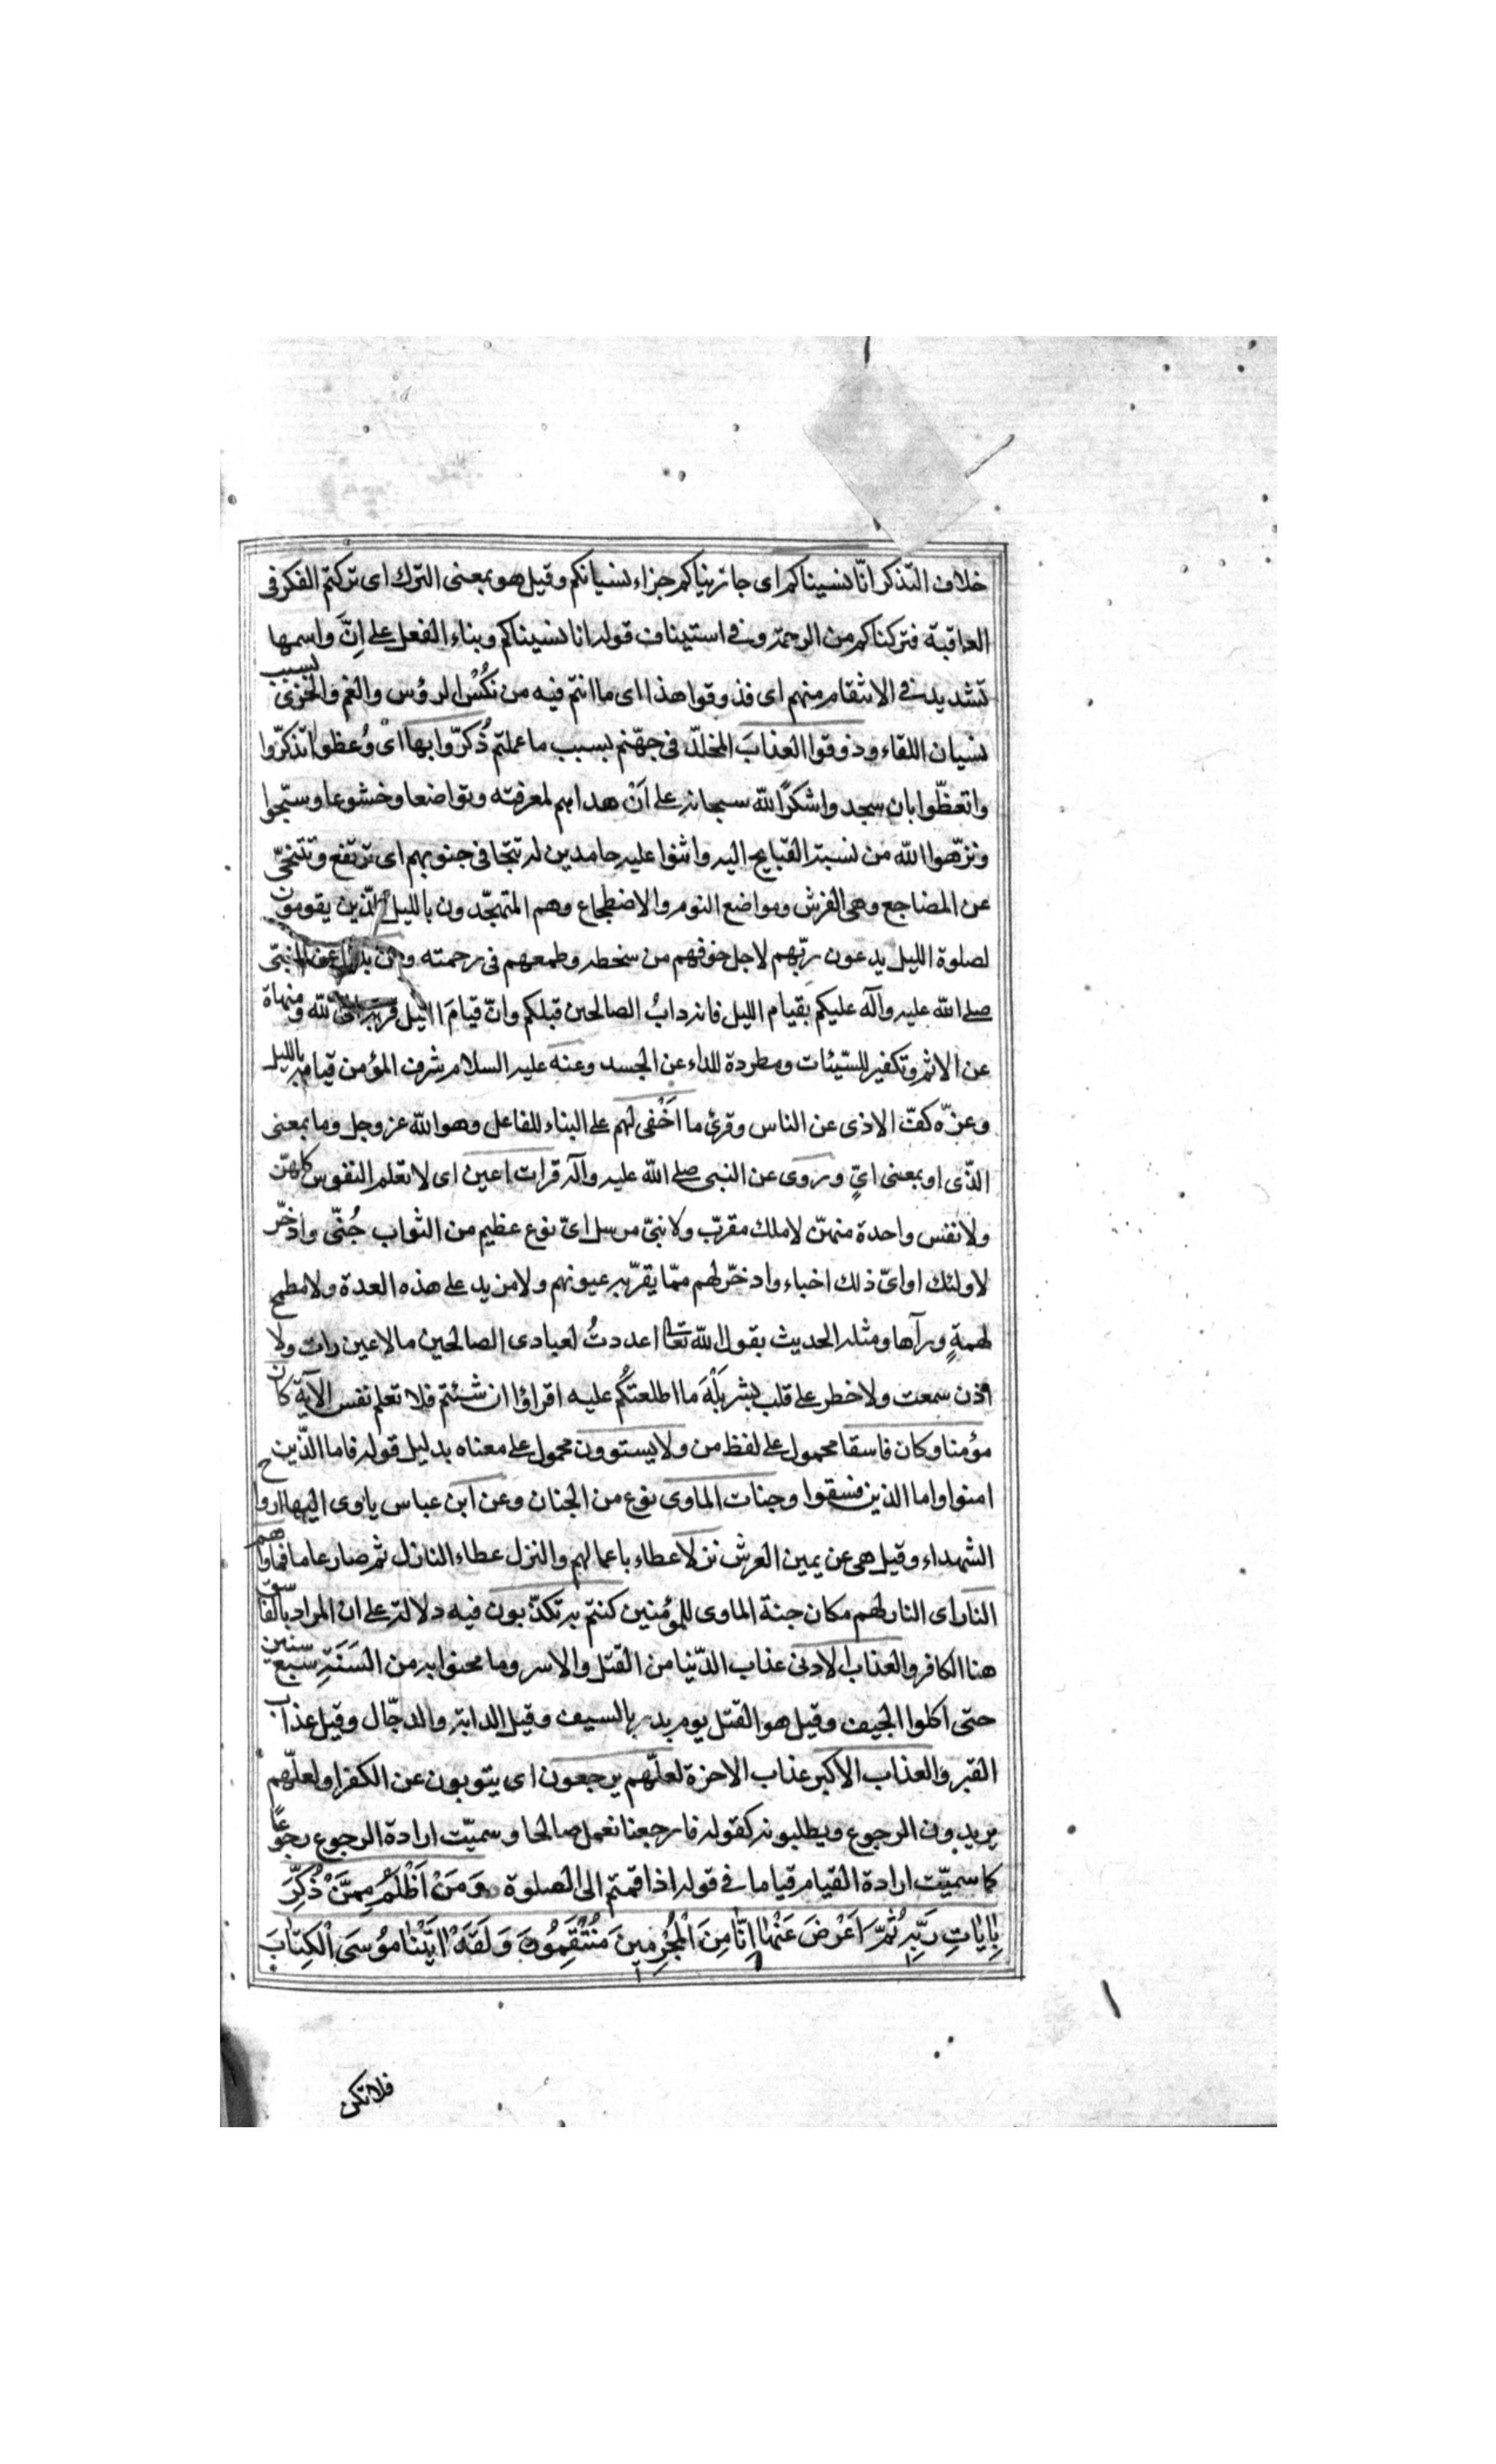 خلاف التذكر انّا نسيناكم اى جازيناكم جزاء نسيانكم وقيل هو بمعنى الترك اى تركتم الفكر فى
العاقبة فتركناكم من الرحمة وفى استيناف قوله انا نسيناكم وبناء الفعل على اِنَّ واسمها
تشديد فى الانتقام منهم اى فذوقوا هذا اى ما انتم فيه من نَكُسْ الرؤس والغم والخزى بسبب
نسيان اللقاء وذوقوا العذابَ المخلّد فى جهّنم بسبب ما عملتم ذُكرّوا بها اى وُعظوا تذكرّوا
واتعظّوا بان سجدوا شكرًا لله سبحانه على اَنْ هداهم لمعرفته وتواضعا وخشوعا وسبّحوا
ونزّهوا الله من نسبة القبايح اليه واثنوا عليه حامدين له تتجافى جنوبهم اى ترتفع وتتنحّى
عن المضاجع وهى الفرش ومواضع النوم والاضطجاع وهم المتهجّدون بالليل الّذين يقومون
لصلوة الليل يدعون ربّهم لاجل خوفهم من سخطه وطمعهم فى رحمته وعن بلال عن النبّى
صلى الله عليه وآله عليكم بقيام الليل فانه دابُ الصالحين قبلكم وانّ قيامَ الليل قربة الى الله ومنهاة
عن الاثم وتكفير للسّيئات ومطردة للداء عن الجسد وعنه عليه السلام شرف المؤمن قيامه بالليل
وعزّه كفّ الاذى عن الناس وقرئ ما اَخْفى لهم على البناء للفاعل وهو الله عز وجل وما بمعنى
الذّى او بمعنى اىّ وروى عن النبى صلى الله عليه وآله قرات اعين اى لا تعلم النفوس كلهنّ
ولا نفس واحدة منهنّ لا ملك مقرّب ولا نبىّ مرسل اىّ نوع عظيم من الثواب خُبّى وادخّر
لاولئك او اىّ ذلك اخباء وادخرّ لهم ممّا يقرّ به عيونهم ولا مزيد على هذه العدة ولا مطمح
لهمةٍ ورآها ومثله الحديث يقول الله تعالى اعددتُ لعبادى الصالحين ما لا عين رات ولا
اذن سمعت ولا خطر على قلب بشر بَلْهَ ما اطلعتُكُم عليه اقراؤا ان شئتم فلا تعلم نفس الآية كان
مؤمنا وكان فاسقا محمول على لفظ من ولا يستوون محمول على معناه بدليل قوله فاما الّذين
امنوا واما الذين فسقوا وجنات الماوى نوع من الجنان وعن ابن عباس ياوى اليها ارواح
الشهداء وقيل هى عن يمين العرش نزلا عطاء باعمالهم والنزل عطاء النازل ثم صار عاما فماواهم
النار اى النار لهم مكان جنة الماوى للمؤمنين كنتم به تكذّبون فيه دلالة على ان المراد بالفاسق
هنا الكافر والعذاب الادنى عذاب الدّنيا من القتل والاسر وما محنوا به من السَنَةِ سبع سنين
حتى اكلوا الجيف وقيل هو القتل يوم بدر بالسيف وقيل الدابة والدجّال وقيل عذاب
القبر والعذاب الاكبر عذاب الاخرة لعلّهم يرجعون اى يتوبون عن الكفر او لعلّهم
يريدون الرجوع ويطلبونه كقوله فارجعنا نعمل صالحا وسميّت ارادة الرجوع رجوعًا
كما سميّت ارادة القيام قياما فى قوله اذا قمتم الى الصلوة وَمَنْ اَظْلَمُ مِمَّنْ ذُكِّرَ
بِايٰاتِ رَبِّهِ ثُمَّ اَعْرَضَ عَنْهٰا اِنّٰا مِنَ الْمُجْرِمينَ مُنْتَقِمُونَ وَلَقَدْ اٰتَيْنٰا مُوسَى الْكِتٰابَ
فلا تكن